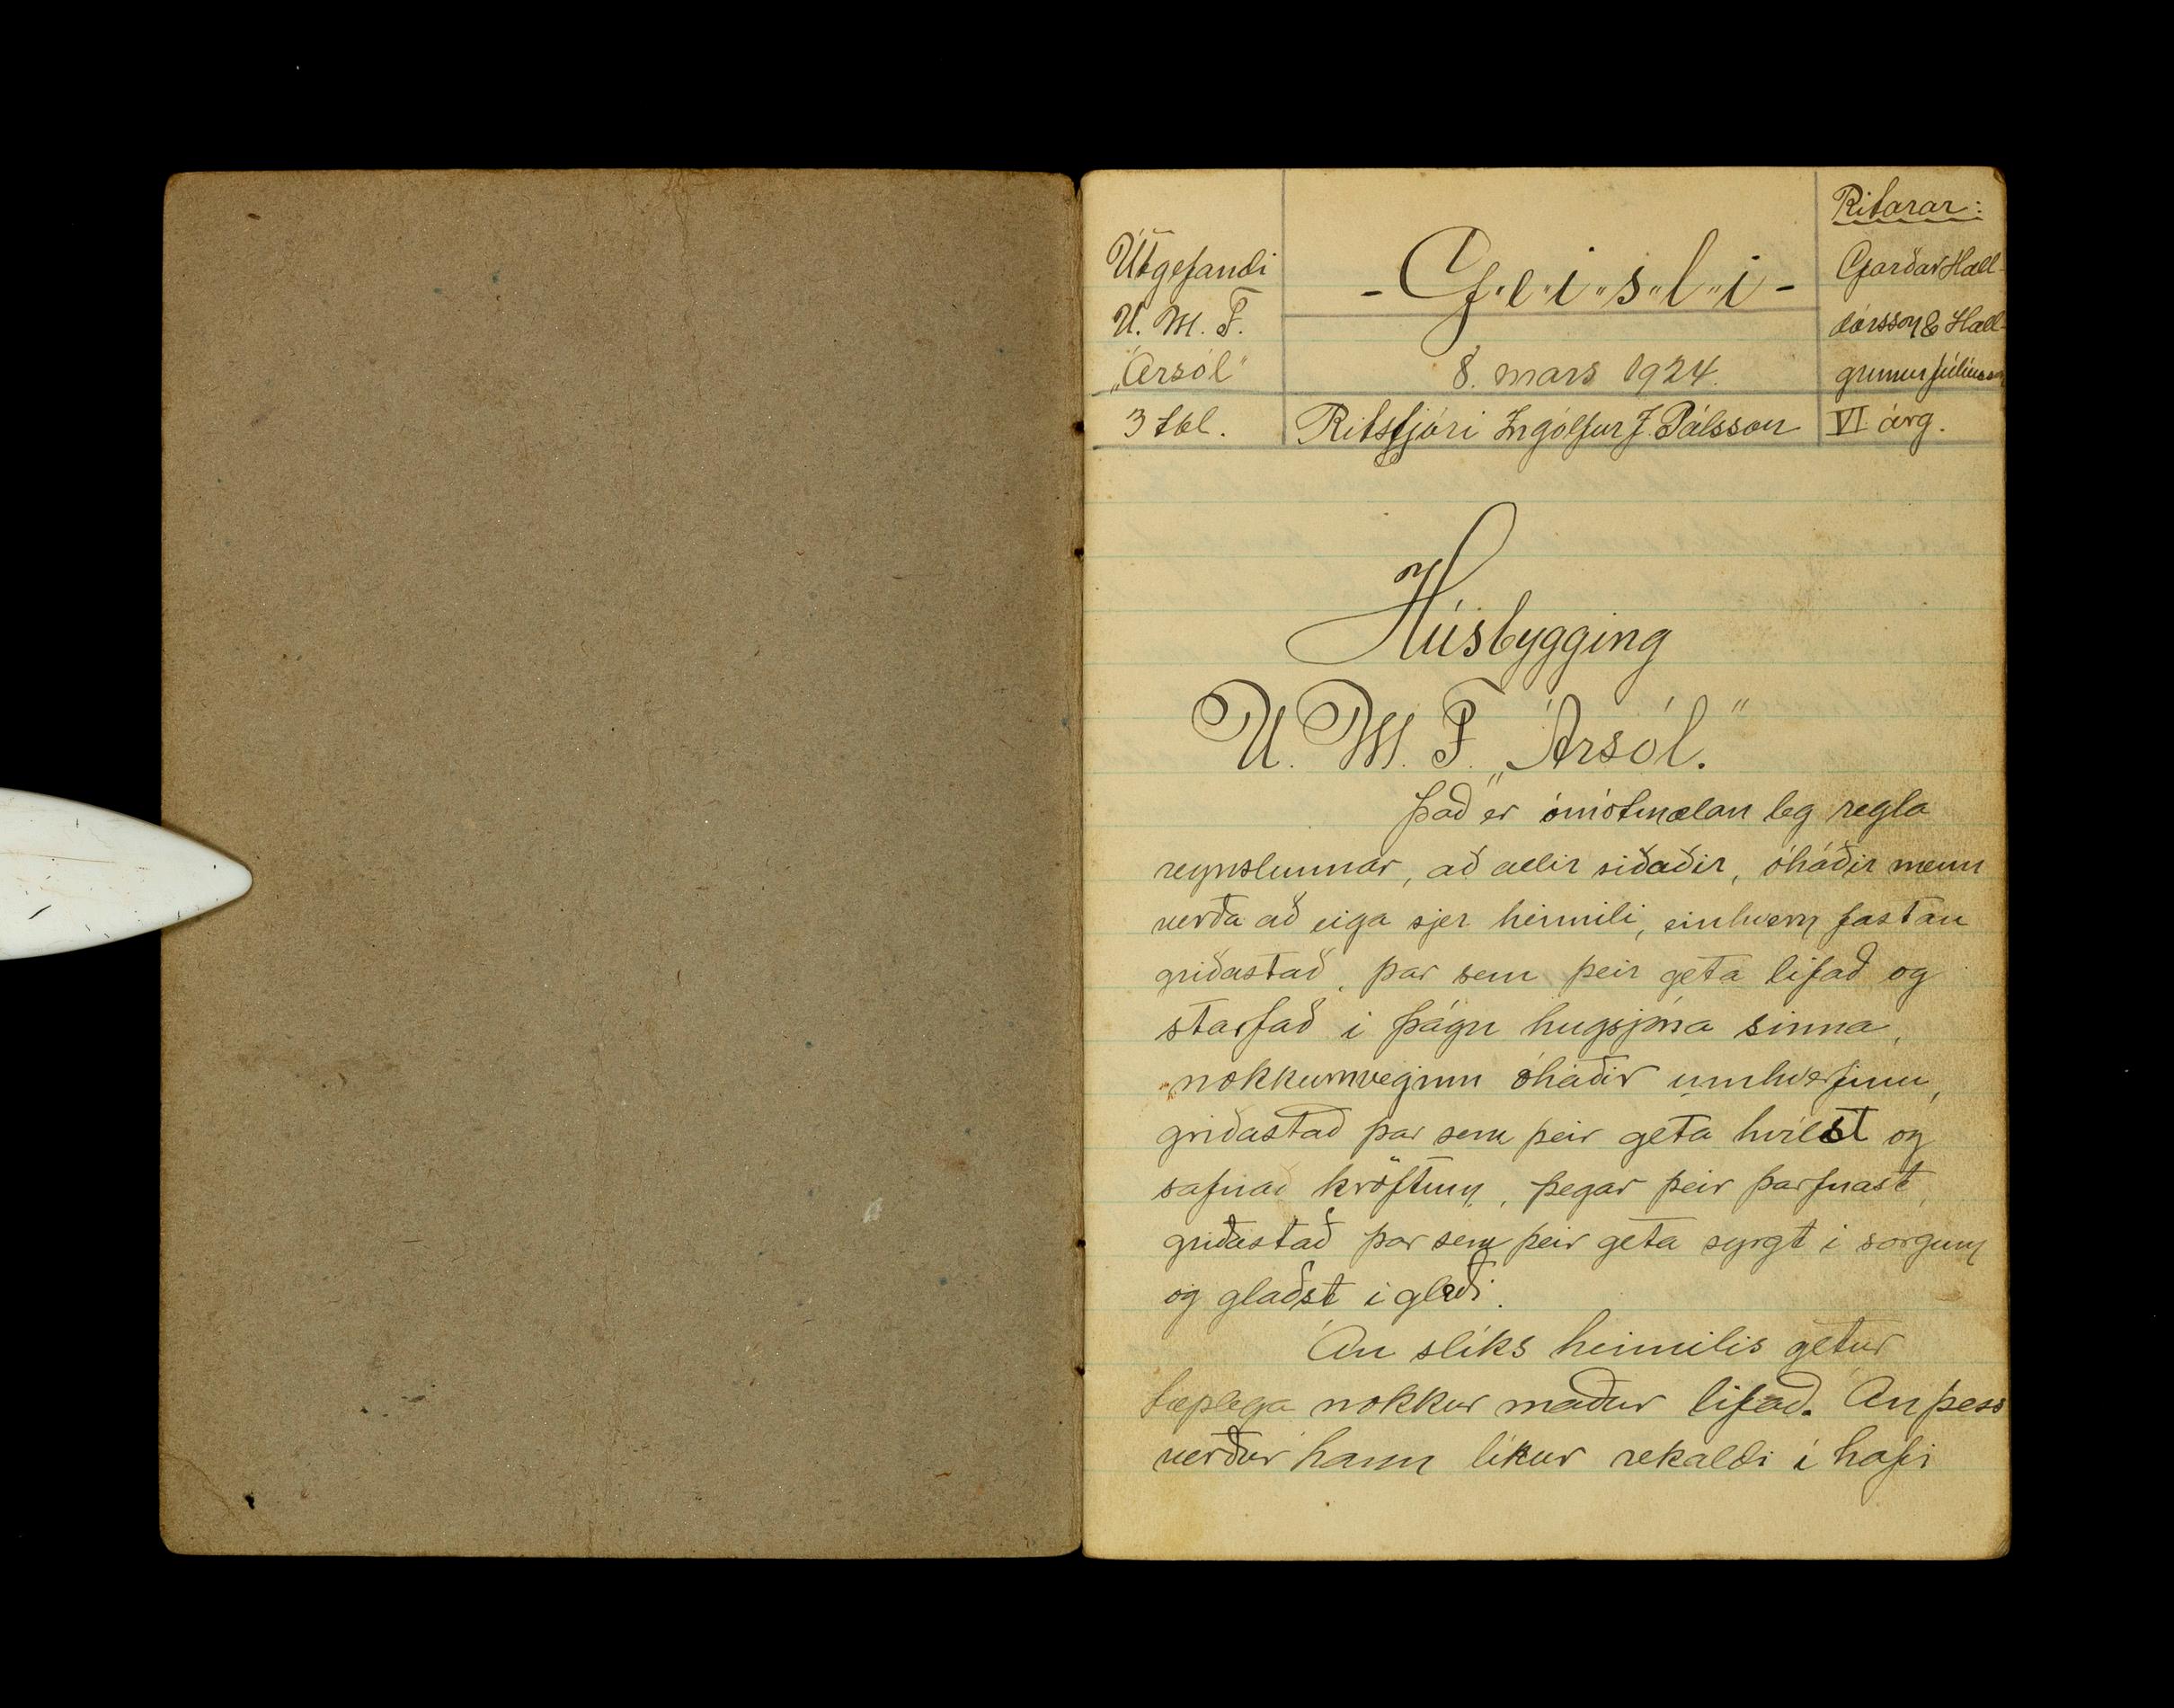 Útgefandi
U. M. F.
„Ársól"
3 tbl.
- G.e.i.s.l.i -
8. mars 1924.
Ritstjóri Ingólfur J. Pálsson
Ritarar:
Garðar Hall-
dórsson & Hall-
grímur Júlíusson
VI árg.
Húsbygging
U. M. F. „Ársól."
Það er ómótmælan leg regla
reynslunnar, að allir siðaðir, óháðir menn
verða að eiga sjer heimili, einhvern fastan
griðastað, þar sem þeir geta lifað og
starfað i þágu hugsjóna sinna,
nokkurnveginn óháðir umhverfinu,
griðastað þar sem þeir geta hvílst og
safnað kröftum, þegar þeir þarfnast,
griðastað þar sem þeir geta syrgt i sorgum
og glaðst i gleði.
Án slíks heimilis getur
tæplega nokkur maður lifað. Án þess
verður hann líkur rekaldi í hafi